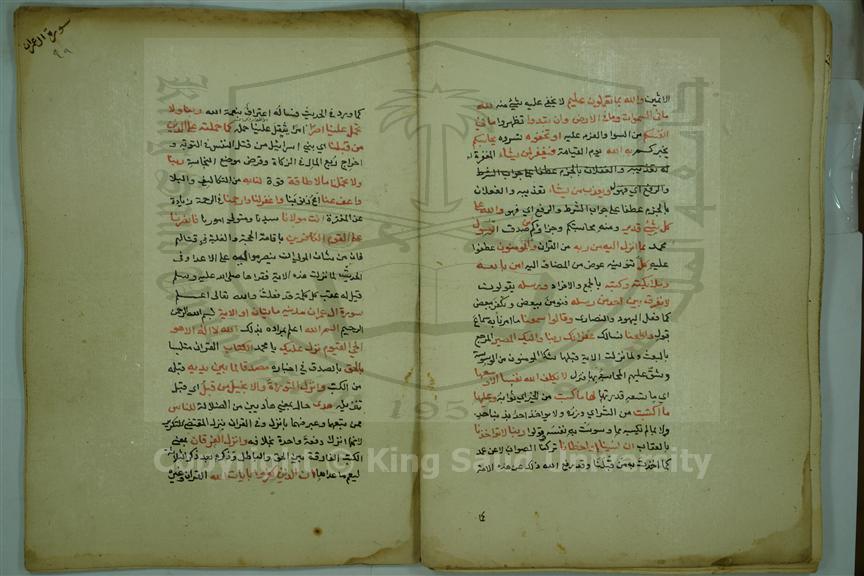 الاثمين والله بما تعملون عليم لا يخفى عليه شيئ منه لله
ما في السموات وما في الارض وان تبدوا تظهروا ما في
انفسكم من السوا والعزم عليه او تخفوه تسروه يحاسبكم
يخبركم به الله يوم القيامة فيغفر لمن يشاء المغفرة
له تعذيبه والفعلان بالجزم عطفا على جواب الشرط
والرفع اي فهو ويعذب من يشاء تعذيبه والفعلان
بالجزم عطفا على جواب الشرط والرفع اي فهو والله على
كل شيئ قدير ومنه محاسبتكم وجزاؤكم امن صدق الرسول
محمد بما انزل اليه من ربه من القران والمومنون عطف
عليه كل تنوينه عوض من المضاف اليه امن بالله
وملائكته وكتبه بالجمع والافراد ورسله يقولون
لا نفرق بين احد من رسله فنومن ببعض ونكفر ببعض
كما فعل اليهود والنصارى وقالوا سمعنا ما امرتنا به سماع
قبول واطعنا نسالك غفرانك ربنا واليك المصير المرجع
بالبعث ولما نزلت الاية قبلها شكا المومنون من الوسوسة
وشق عليهم المحاسبة بها فنزل لا يكلف الله نفسا الا وسعها
اي ما تسعه قدرتها لها ما كسبت من الخير اي ثوابه وعليها
ما اكتسبت من الشر اي وزره ولا يواخذ احد بذنب احد
ولا بما لم يكسبه مما وسوست به نفسه قولوا ربنا لا تواخذنا
بالعقاب ان نسينا او اخطانا تركنا الصواب لا عن عمد
كما اخذت به من قبلنا وقد رفع الله ذلك عن هذه الامة
كما
سورة ال عمران
٤٩
كما ورد في الحديث فسؤاله اعتراف بنعمة الله ربنا ولا
تحمل علينا اصرا امرا يثقل علينا حمله كما حملته على الذين
من قبلنا اي بني اسرائيل من قتل النفس في التوبة و
اخراج ربع المال في الزكاة وقرض موضع النجاسة ربنا
ولا تحملنا ما لا طاقة قوة لنا به من التكاليف والبلا
واعف عنا امح ذنوبنا واغفر لنا وارحمنا في الرحمة زيادة
على المغفرة انت مولانا سيدنا ومتولي امورنا فانصرنا
على القوم الكافرين باقامة الحجة والغلبة في قتالهم
فان من شان المولى ان ينصر مواليه على الاعدا وفي
الحديث لما نزلت هذه الاية فقراها صلى الله عليه وسلم
قيل له عقب كل كلمة قد فعلت والله تعالى اعلم
سورة ال عمران مدنية مايتان او الا اية بسم الله الرحمن
الرحيم الم الله اعلم بمراده بذلك الله لا اله الا هو
الحي القيوم نزل عليك يا محمد الكتاب القران متلبسا
بالحق بالصدق في اخباره مصدقا لما بين يديه قبله
من الكتب وانزل التورية والانجيل من قبل اي قبل
تنزيله هدى حال بمعنى هاديين من الضلالة للناس
ممن تبعهما وعبر فيهما بانزل وفي القران بنزل المقتضي للتكرير
لانهما انزلا دفعة واحدة بخلافه وانزل الفرقان بمعنى
الكتب الفارقة بين الحق والباطل وذكره بعد ذكر الثلاثة
ليعم ما عداها ان الذين كفروا بايات الله القران وغيره
Copyright © King Saud University
195